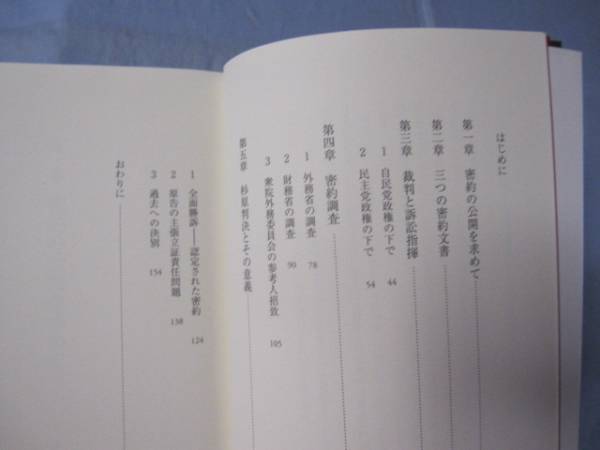 はじめに
第一章 密約の公開を求めて
第二章 三つの密約文書
第三章 裁判と訴訟指揮
1 自民党政権の下で 44
2 民主党政権の下で 54
第四章 密約調査
1 外務省の調査 78
2 財務省の調査 90
3 衆院外務委員会の参考人招致 105
第五章 杉原判決とその意義
1 全面勝訴——認定された密約 124
2 原告の主張立証責任問題 138
3 過去への決別 154
おわりに